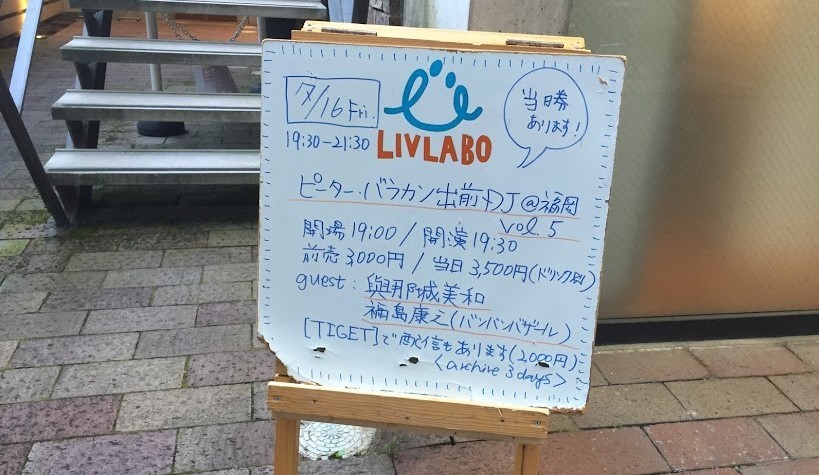 7/16 Fri.
19:30-21:30
LIVLABO
当日券
あります!
ピーター・バラカン出前DJ@福岡
vol.5
開場19:00 / 開演19:30
前売3000円 / 当日3,500円(ドリンク別)
guest: 與那城美和
福島康之(バンバンバザール)
[TIGET]で配信もあります(2,000円)
<archive 3days>